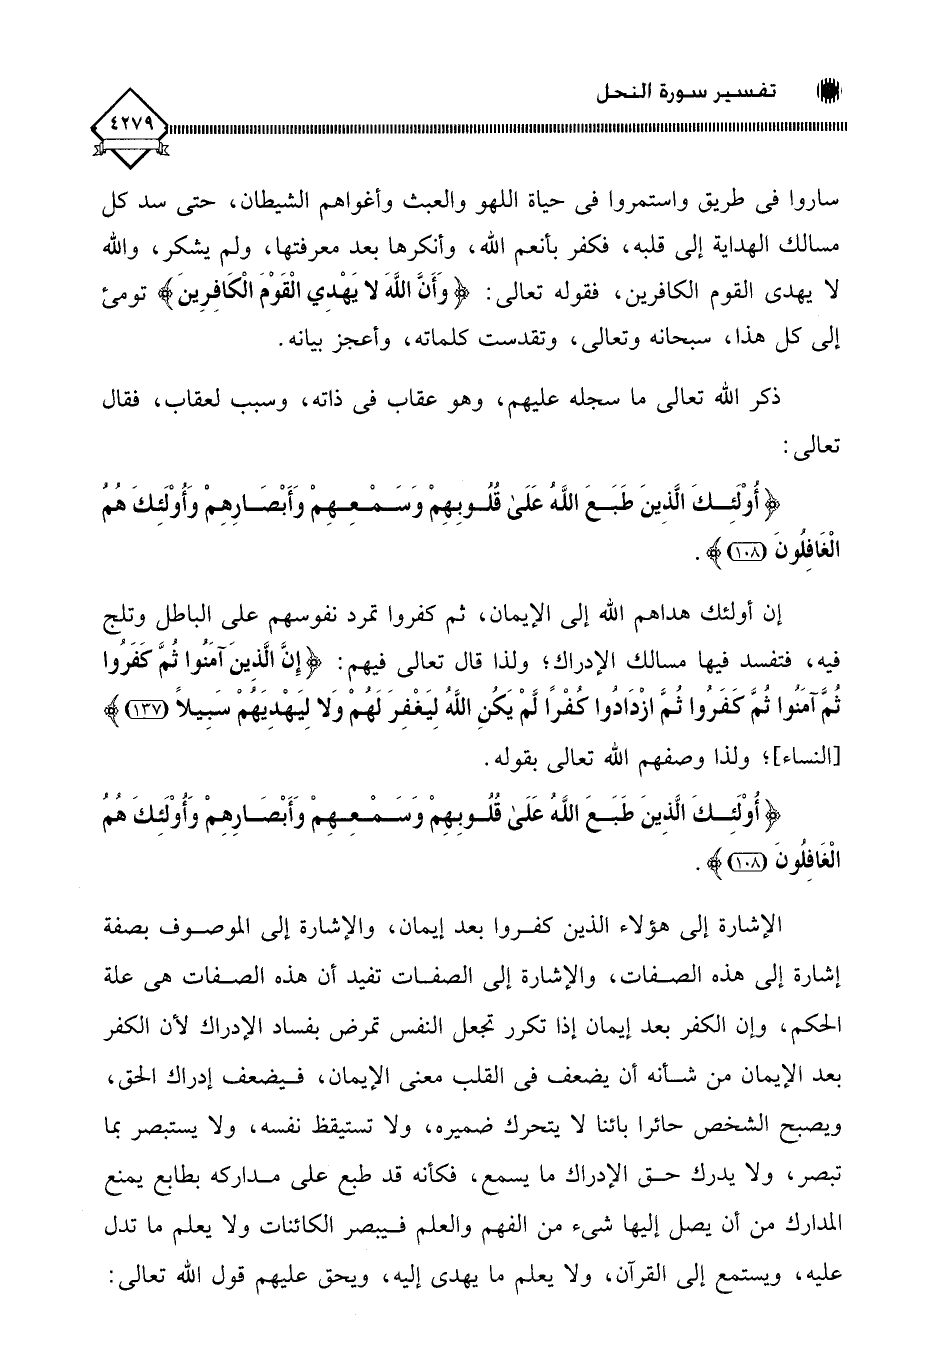 تفسير سورة النحل
٤٢٧٩
ساروا فى طريق واستمروا فى حياة اللهو والعبث وأغواهم الشيطان، حتى سد كل
مسالك الهداية إلى قلبه، فكفر بأنعم الله، وأنكرها بعد معرفتها، ولم يشكر، والله
لا يهدى القوم الكافرين، فقوله تعالى: ﴿وَأَنَّ اللَّهَ لا يَهْدِي الْقَوْمَ الْكَافِرِينَ﴾ تومئ
إلى كل هذا، سبحانه وتعالى، وتقدست كلماته، وأعجز بيانه.
ذكر الله تعالى ما سجله عليهم، وهو عقاب فى ذاته، وسبب لعقاب، فقال
تعالى:
﴿أُوْلَئِكَ الَّذِينَ طَبَعَ اللَّهُ عَلَىٰ قُلُوبِهِمْ وَسَمْعِهِمْ وَأَبْصَارِهِمْ وَأُوْلَئِكَ هُمُ
الْغَافِلُونَ (١٠٨)﴾.
إن أولئك هداهم الله إلى الإيمان، ثم كفروا تمرد نفوسهم على الباطل وتلج
فيه، فتفسد فيها مسالك الإدراك؛ ولذا قال تعالى فيهم: ﴿إِنَّ الَّذِينَ آمَنُوا ثُمَّ كَفَرُوا
ثُمَّ آمَنُوا ثُمَّ كَفَرُوا ثُمَّ ازْدَادُوا كُفْرًا لَّمْ يَكُنِ اللَّهُ لِيَغْفِرَ لَهُمْ وَلا لِيَهْدِيَهُمْ سَبِيلاً (١٣٧)﴾
[النساء]؛ ولذا وصفهم الله تعالى بقوله.
﴿أُوْلَئِكَ الَّذِينَ طَبَعَ اللَّهُ عَلَىٰ قُلُوبِهِمْ وَسَمْعِهِمْ وَأَبْصَارِهِمْ وَأُوْلَئِكَ هُمُ
الْغَافِلُونَ (١٠٨)﴾.
الإشارة إلى هؤلاء الذين كفروا بعد إيمان، والإشارة إلى الموصوف بصفة
إشارة إلى هذه الصفات، والإشارة إلى الصفات تفيد أن هذه الصفات هى علة
الحكم، وإن الكفر بعد إيمان إذا تكرر تجعل النفس تمرض بفساد الإدراك لأن الكفر
بعد الإيمان من شأنه أن يضعف فى القلب معنى الإيمان، فيضعف إدراك الحق،
ويصبح الشخص حائرا بائنا لا يتحرك ضميره، ولا تستيقظ نفسه، ولا يستبصر بما
تبصر، ولا يدرك حق الإدراك ما يسمع، فكأنه قد طبع على مداركه بطابع يمنع
المدارك من أن يصل إليها شىء من الفهم والعلم فيبصر الكائنات ولا يعلم ما تدل
عليه، ويستمع إلى القرآن، ولا يعلم ما يهدى إليه، ويحق عليهم قول الله تعالى: